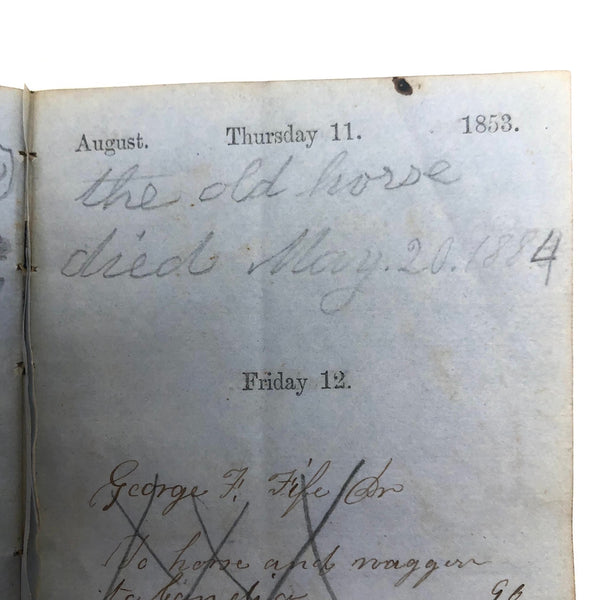 August. Thursday 11. 1853.
the old horse
died May. 20. 1884
Friday 12.
George F. Fife Dr
To horse and waggen
to